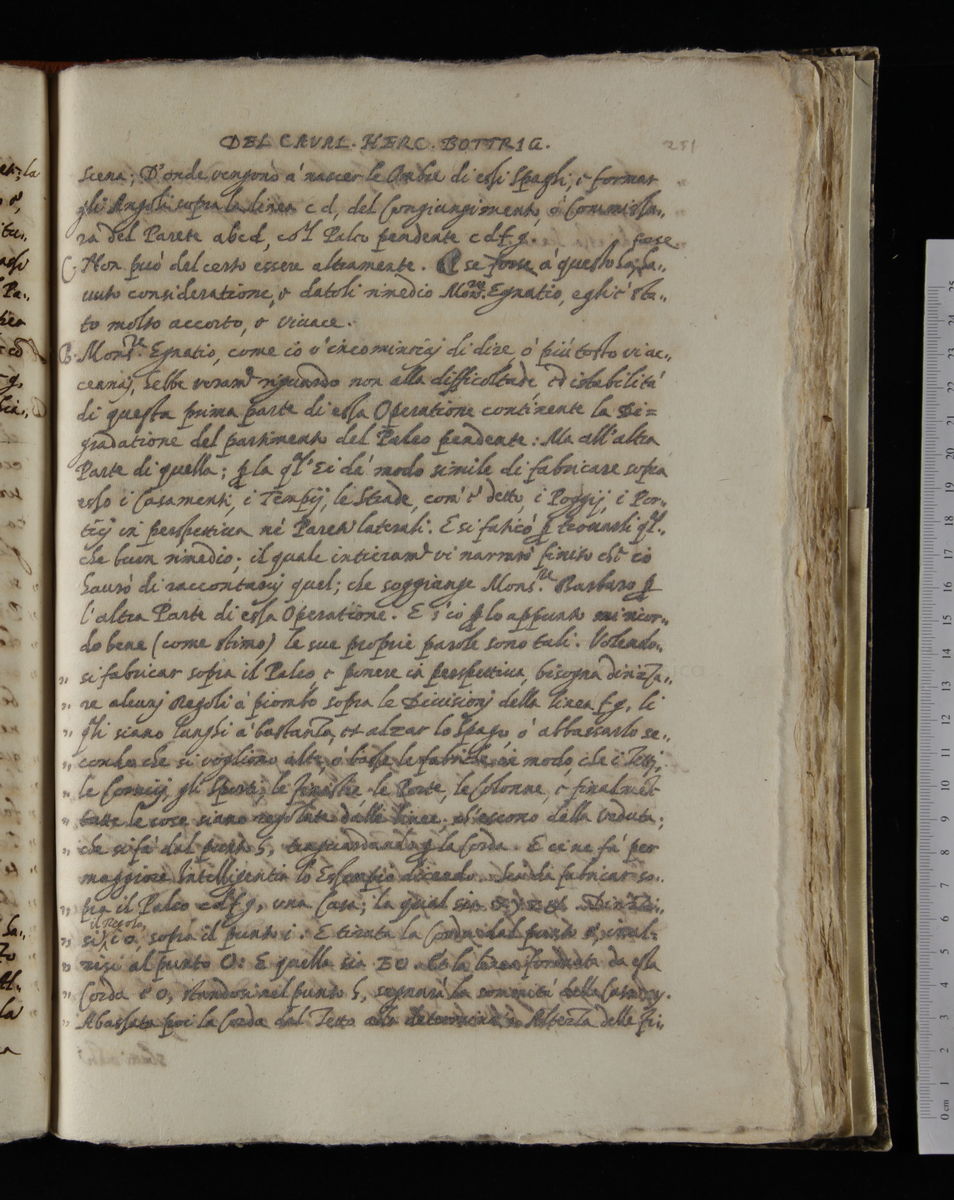 DEL CAVAL. HERC. BOTTRIG.
251
Scena; D'onde vengono à nascer le Ombre di essi Spaghi, e formar
gli Angoli sopra la linea c d, del Congiungimento, ò Commissu,,
ra del Parete abcd, co'l Palco pendente c d f g.
C. Non può del certo essere altramente. se forse à questo
uuto consideratione, e datoli rimedio Mons.re Egnatio, egli è sta,,
to molto accorto, e viuace.
B. Mons.re Egnatio, come io v'incominciai di dire, ò più tosto vi ac,,
cennaj, hebbe veram.te riguardo non alla difficoltade, et istabilità
di questa prima parte di essa Operatione continente la Di=
gradatione del partimento del Palco pendente: Ma all'altra
Parte di quella; la q.l Ei dà modo simile di fabricare sopra
esso i Casamenti, i Tempij, le Strade, com'è detto, i Poggij, i Por,,
tici in perspettiua nè Pareti laterali. E si faticò p trouarli q.l,,
che buon rimedio; il quale intieram.te vi narrarò finito ch'io
hauró di raccontarvj quel; che soggiunse Mons.re Barbaro p
l'altra Parte di essa Operatione. E s'io p lo appunto mi ricor,,
do bene (come stimo) le sue proprie parole sono tali. Volendo,,
,, si fabricar sopra il Palco, e ponere in perspettiua, bisogna dirizza,,
,, re alcunj Regoli à piombo sopra le Diuisionj della linea f g, li
,, q.li siano lunghi à bastanza, et alzar lo Spago ò abbassarlo se,,
,, condo che si vogliono alte, ò basse le fabriche in modo, che i Tetti,
,, le Cornicij, gli Sporti, le finestre le Porte, le Colonne, e finalmēte
,, tutte le cose siano regolate dalle linee, ch'escono della veduta;
,, che si fà dal punto h, traguardando p la Corda. E ci ne fà per
maggiore Intelligentia lo Essempio dicendo. Sia da fabricar so,,
,, pra il Palco c d f g, una Casa; la qual sia Dirizzi,,
il Regolo
,, si i o, sopra il punto i. E tirata la Corda dal punto
,, risi al punto O: E quella sia EO. la linea formata da essa
,, Corda e o, standosi nel punto h, segnarà la sommità della Casa
,, Abassata poi la Corda dal Tetto alla determinata Altezza delle fi,,